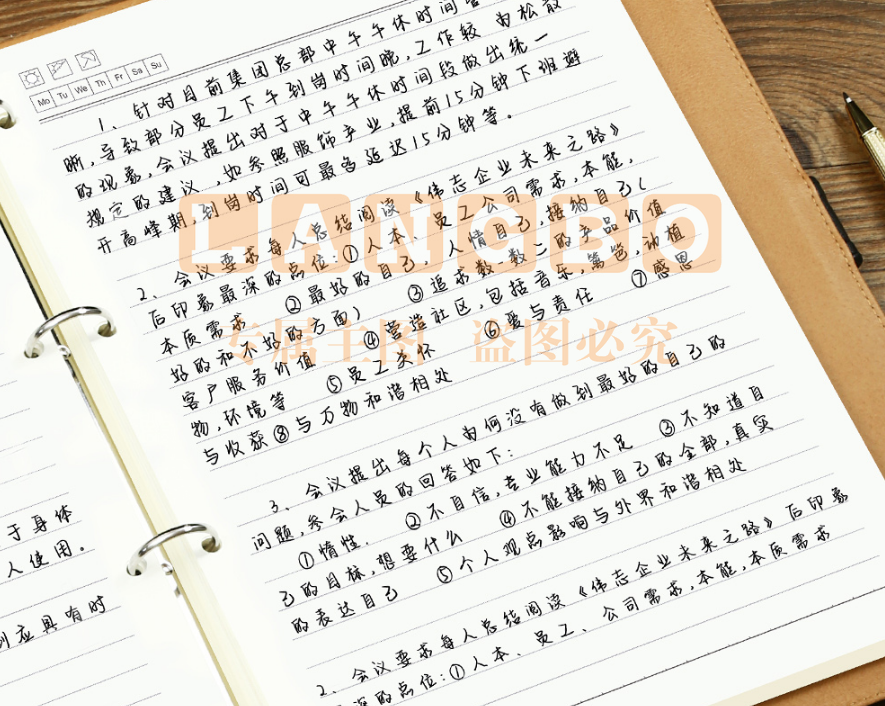 Mo Tu We Th Fr Sa Su
1、针对目前集团总部中午午休时间管
晰,导致部分员工下午到岗时间晚,工作较为松散
的现象,会议提出对于中午午休时间段做出统一
规定的建议,如参照服饰产业,提前15分钟下班避
开高峰期,到岗时间可最多延迟15分钟等。
2、会议要求每人总结阅读《伟志企业未来之路》
后印象最深的点位:①人本、员工公司需求,本能,
本质需求 ②最好的自己,人情自己,接纳自己(
好的和不好的方面) ③追求数一数二的产品价值
客户服务价值 ④营造社区,包括音乐,篱笆,动植
物,环境等 ⑤员工关怀 ⑥爱与责任 ⑦感恩
与收获⑧与万物和谐相处
3、会议提出每个人为何没有做到最好的自己的
问题,参会人员的回答如下:
①惰性. ②不自信,专业能力不足 ③不知道自
己的目标,想要什么 ④不能接纳自己的全部,真实
的表达自己 ⑤个人观点影响与外界和谐相处
2、会议要求每人总结阅读《伟志企业未来之路》后印象
深的点位:①人本、员工、公司需求,本能,本质需求
于身体
人使用。
则应具有时
LANGBO
专属主图 盗图必究